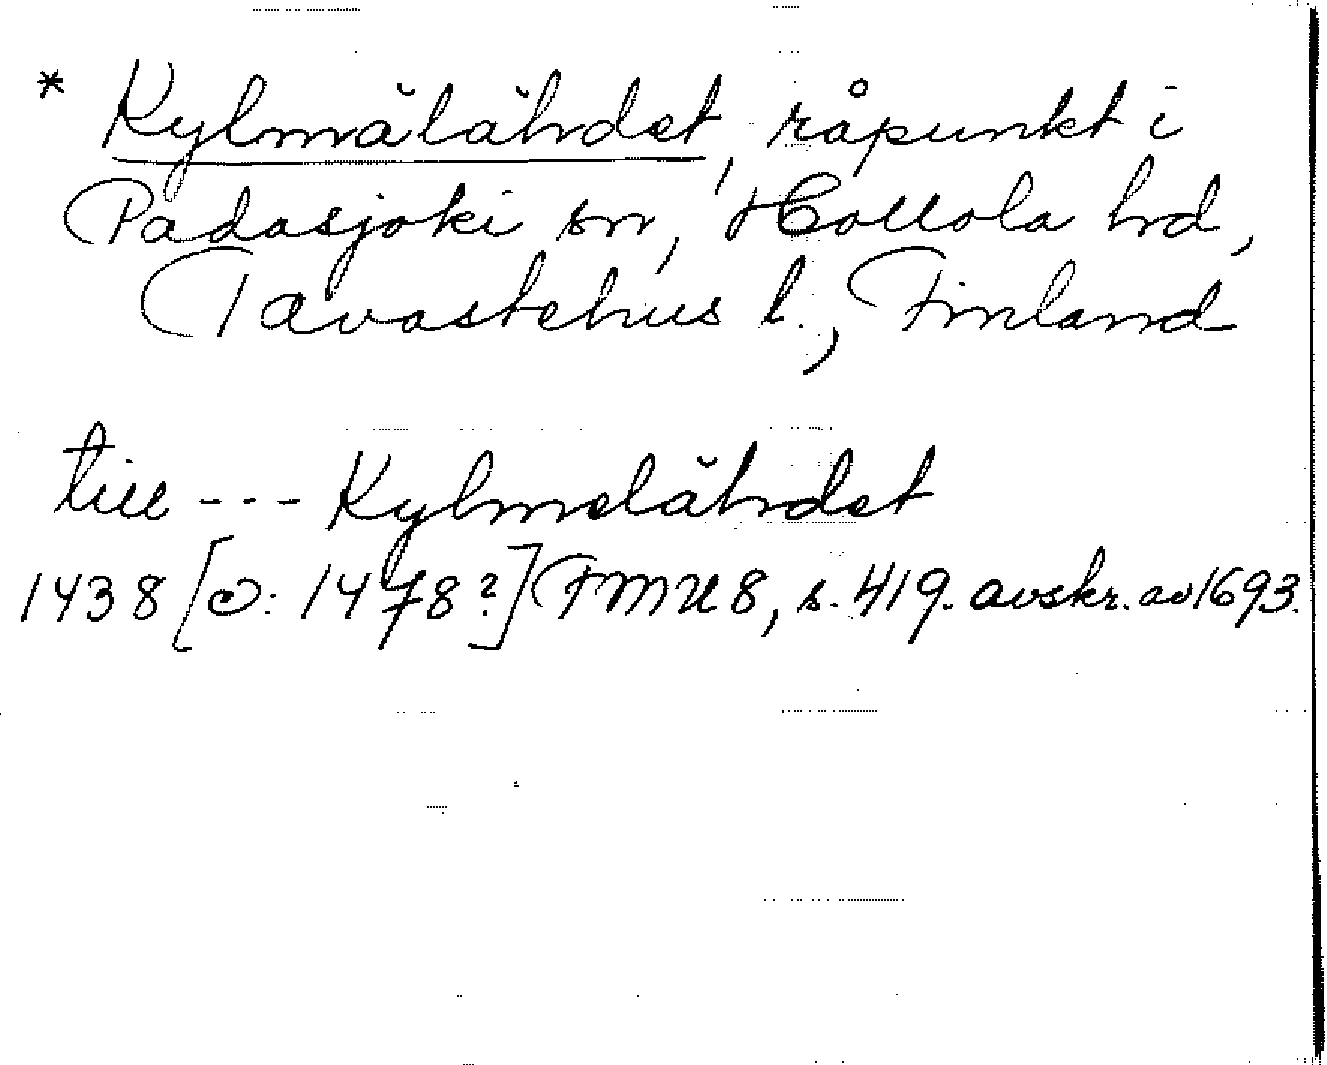 * Kylmälähdet, råpunkt i
Padasjoki sn, Hollola hd,
Tavastehus l., Finland
till --- Kylmelähdet
1438 [ɔ: 1478?] FMU 8, s. 419. avskr. av 1693.